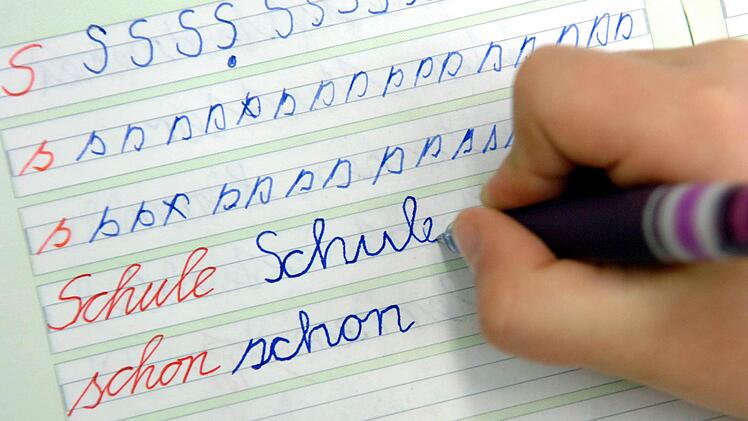 S S S S S S S S S S
s s s s s s s s s s s s s s s s s
s s s s s s s s s s s s
Schule Schule
schon schon